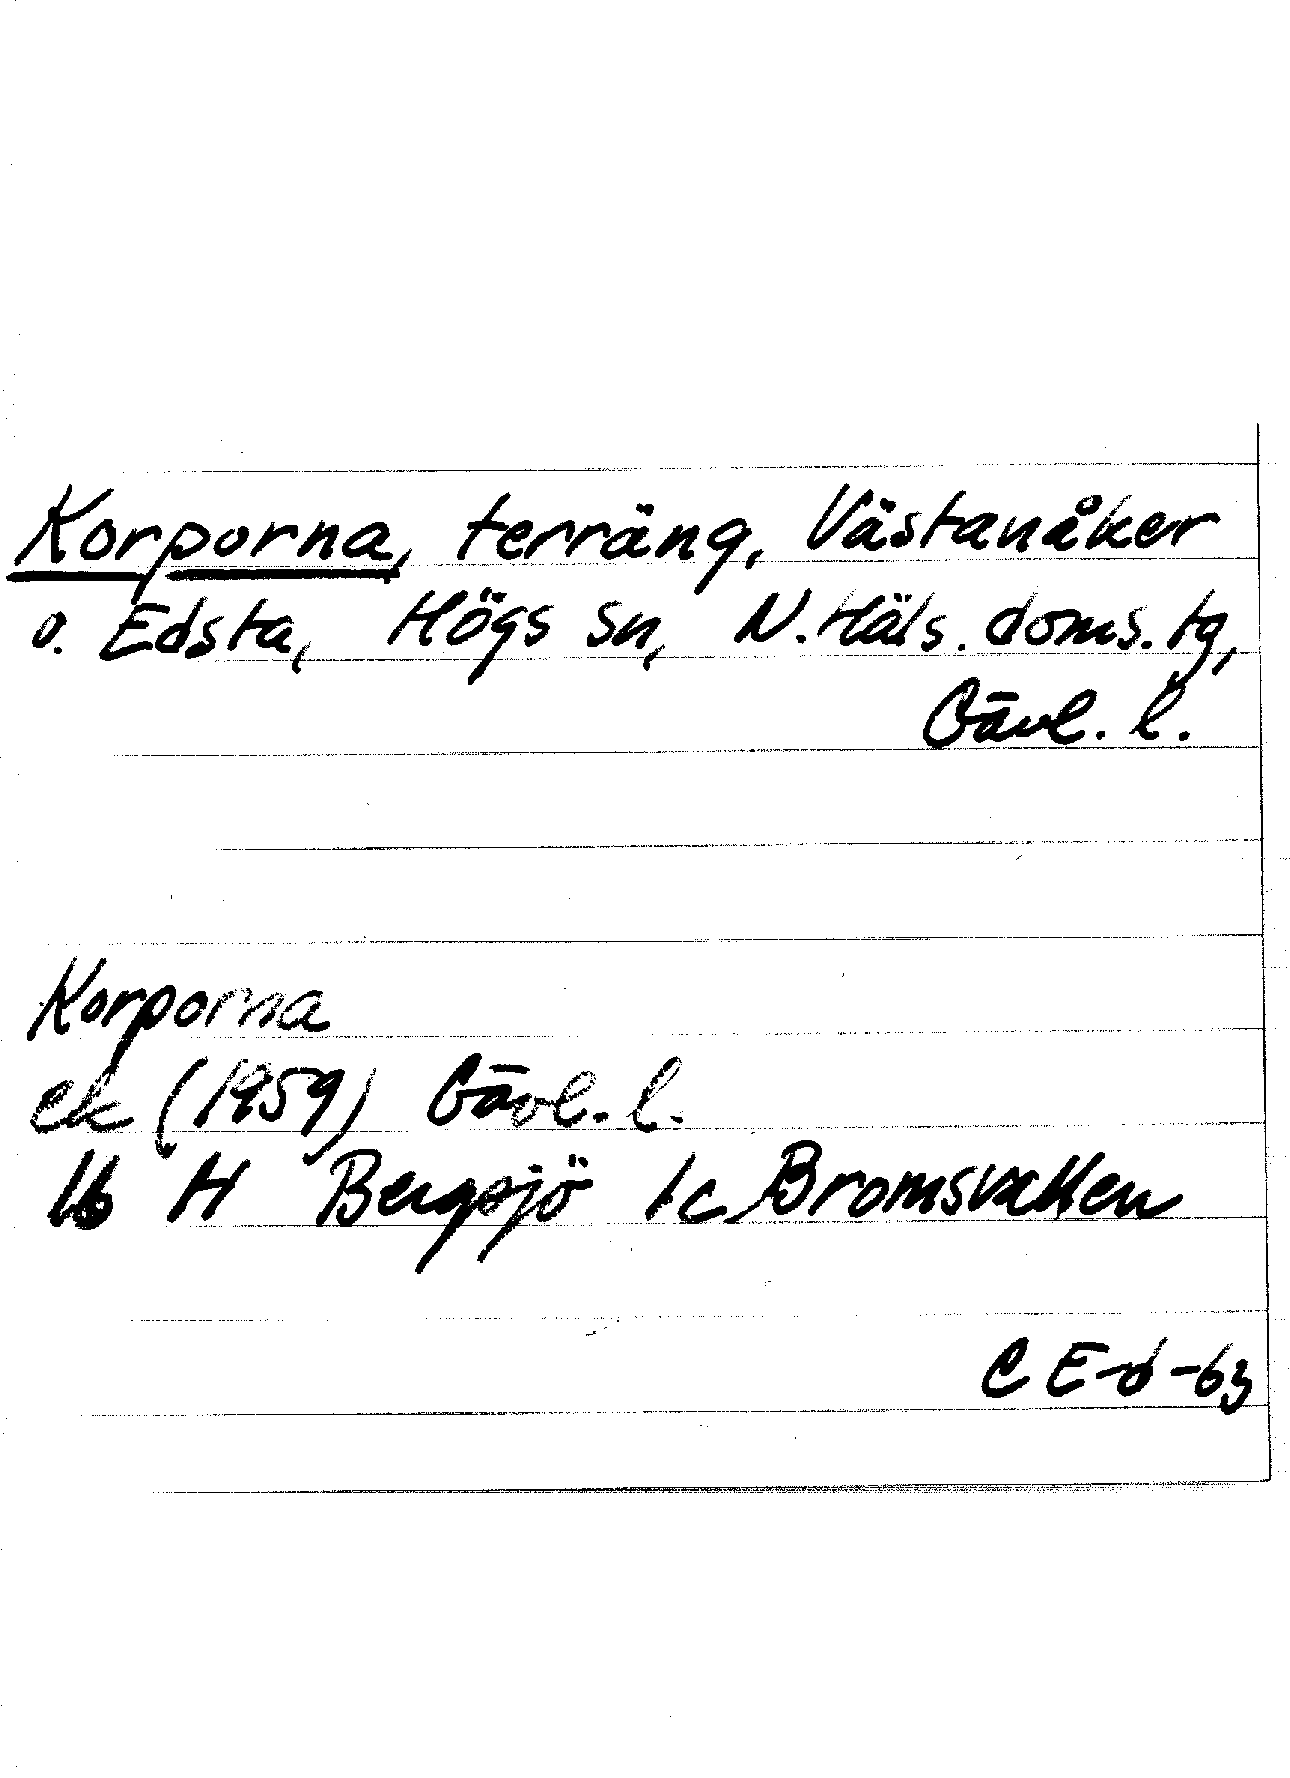 Korporna, terräng, Västanåker
o. Edsta, Högs sn, N. Häls. doms. tg,
Gävl. l.
Korporna
ek (1959) Gävl. l.
16 H Bergsjö 1c Bromsvallen
C E-d -63